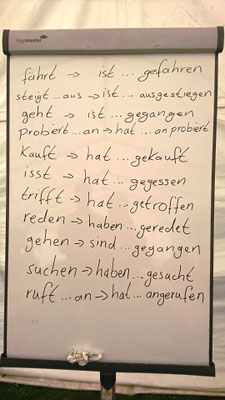 legamaster
fährt → ist ... gefahren
steigt ... aus → ist ... ausgestiegen
geht → ist ... gegangen
probiert ... an → hat ... an probiert
kauft → hat ... gekauft
isst → hat ... gegessen
trifft → hat ... getroffen
reden → haben ... geredet
gehen → sind ... gegangen
suchen → haben ... gesucht
ruft ... an → hat ... angerufen